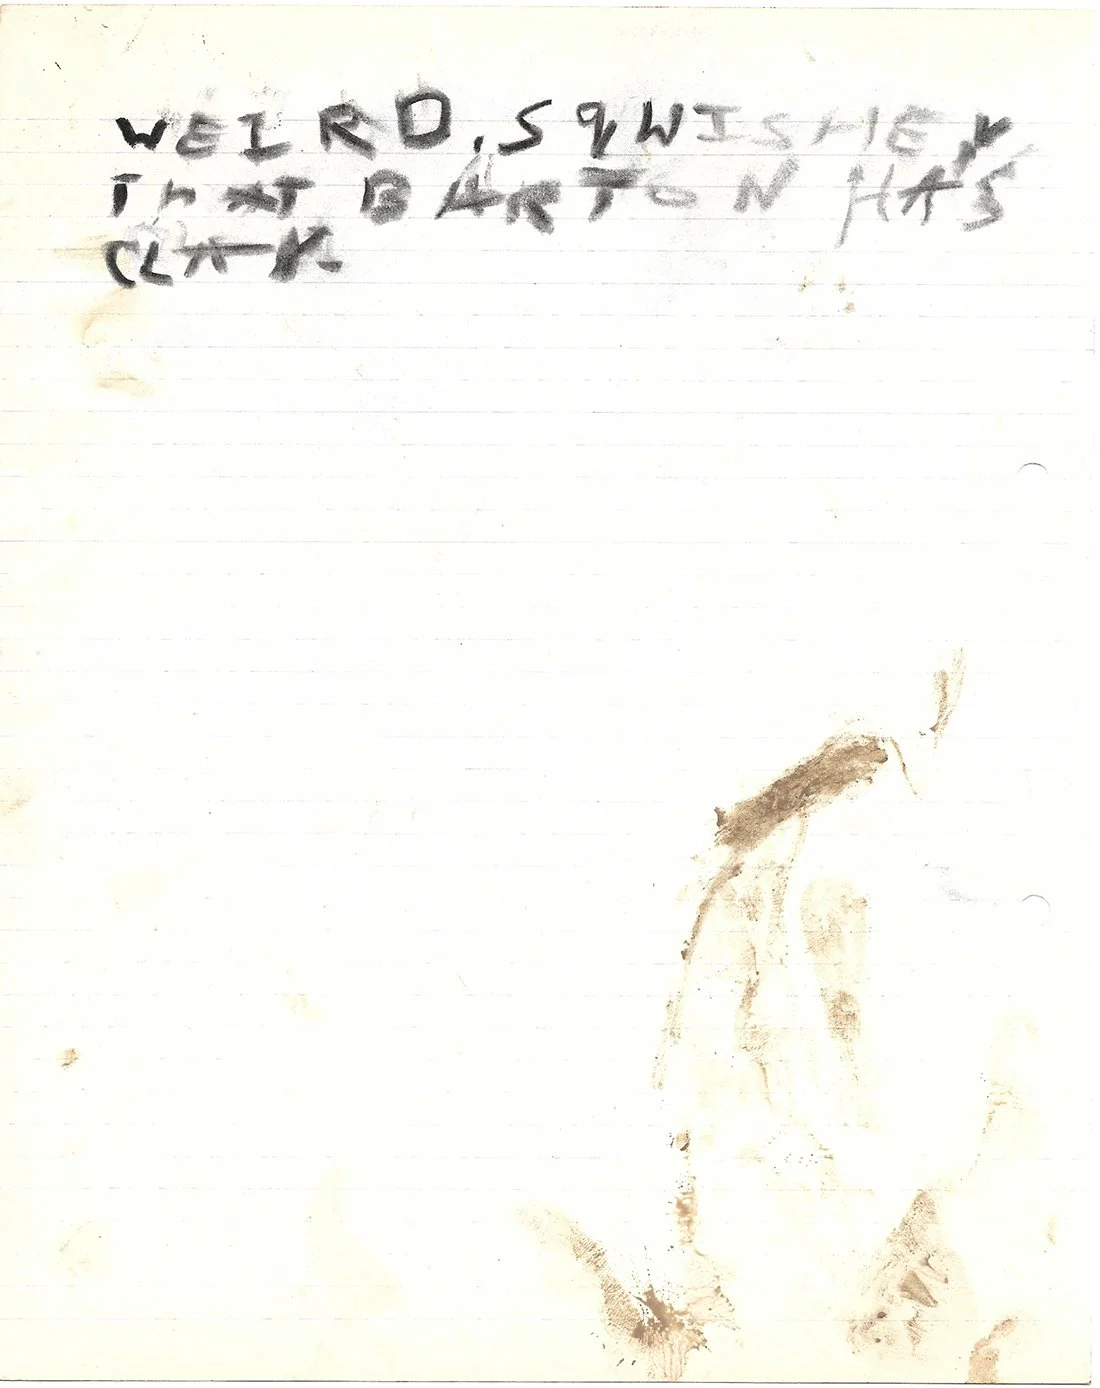 WEIRD, SQWISHEY
THAT BARTON HAS